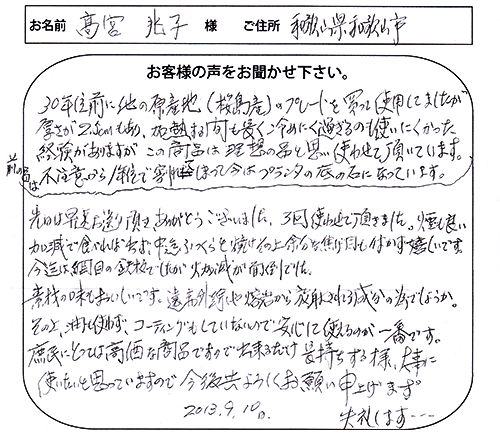 お名前 髙宮 兆子 様 ご住所 和歌山県和歌山市
お客様の声をお聞かせ下さい。
30年位前に他の原産地(桜島産)のプレートを買って使用してましたが
厚さが2.5cmもあり、加熱する何も長く冷めにく過ぎるのも使いにくかった
経験がありますが この商品は理想の品と思い使わせて頂いています。
前の品は 不注意から1年位で割れてしまって今はプランタの底の石になっています。
先日は早速お送り頂きありがとうございました。3回使わせて頂きました。煙も良い
加減で食べれば出ず、中迄ふっくらと焼け 余分な焦げ目も付かず嬉しいです。
今迄は網目の鉄板でしたが 火加減が面倒でした。
素材の味もおいしいです。遠赤外線や熔岩から放射される成分の為でしょうか。
その上、油も使わず、コーティングもしていないので安心して使えるのが一番です。
庶民にとっては高価な商品ですので出来るだけ長持ちする様、大事に
使いたいと思っていますので今後共よろしくお願い申上げます
2013.9.10日. 失礼します‥‥